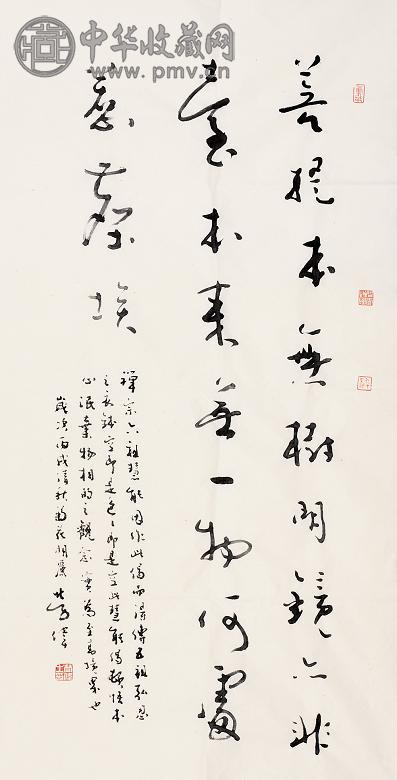 中华收藏网
www.pmv.cn
菩提本無樹明鏡亦非
臺本來無一物何處
惹塵埃
禪宗六祖慧能因作此偈而得傳五祖弘忍
之衣缽空即是色〻即是空此慧能頓悟本
心泯棄物相的之觀念實為至高境界也
歲次丙戌清秋菊花